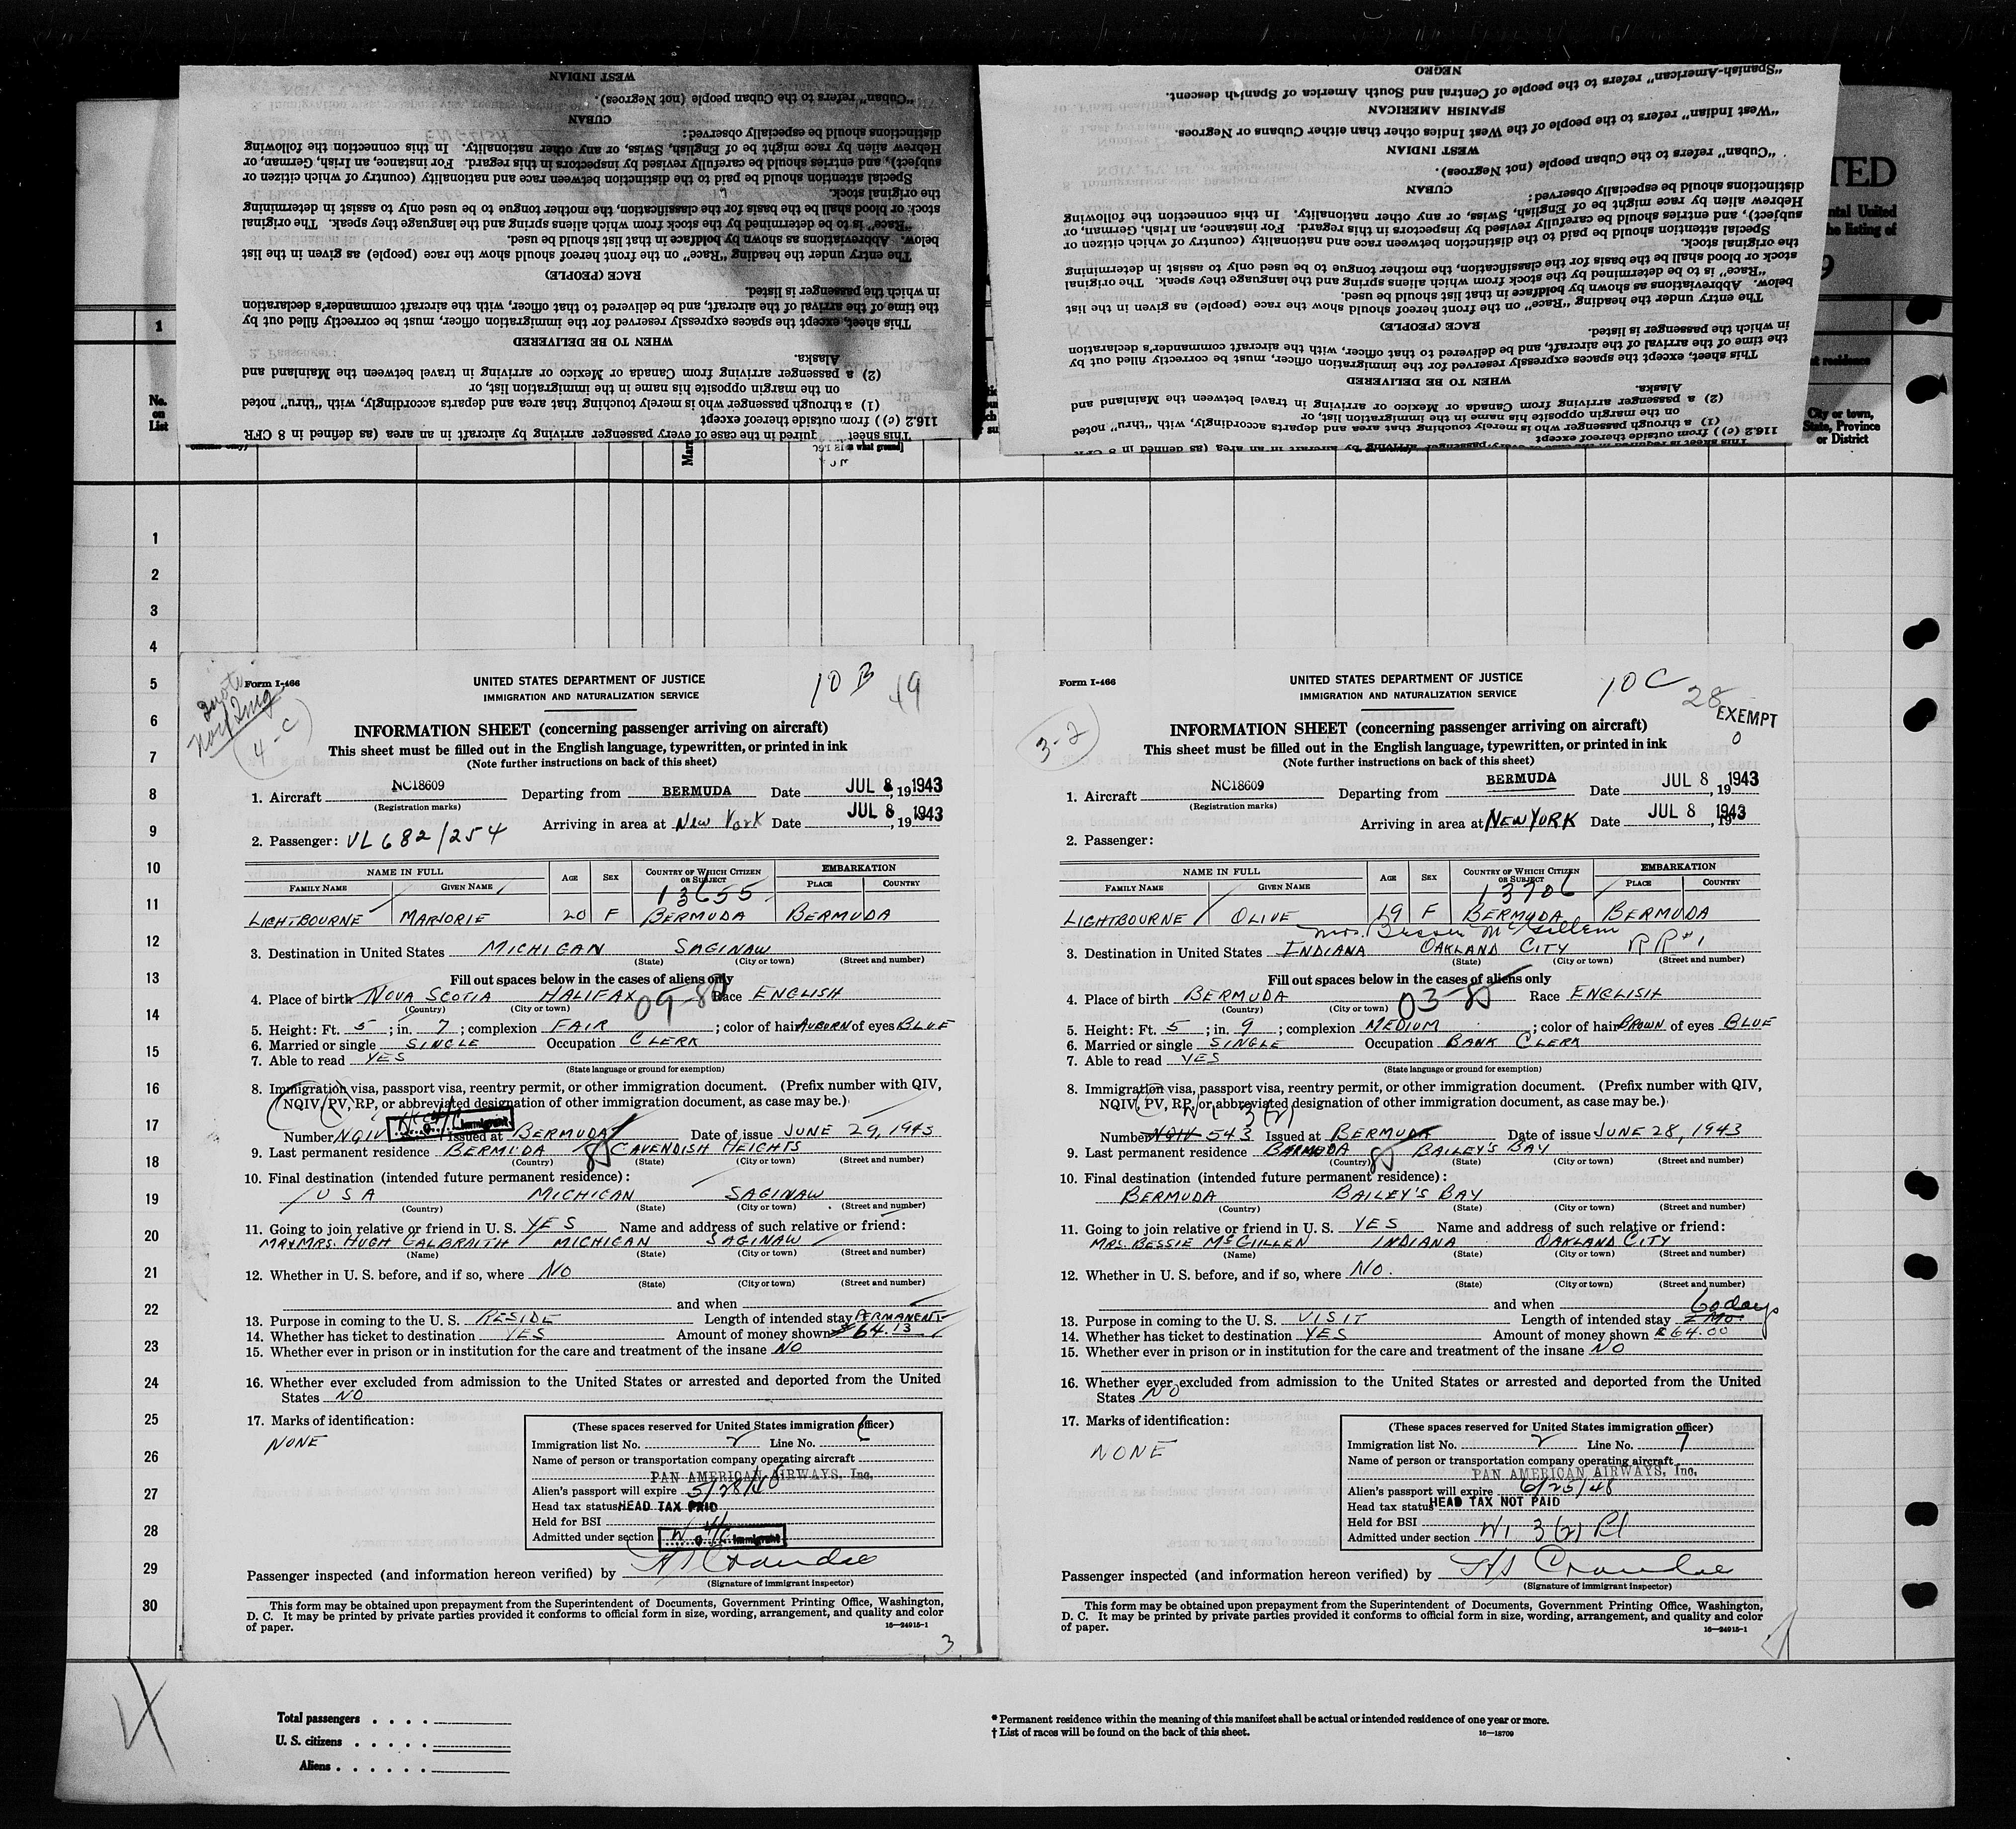 WEST INDIAN
"Cuban" refers to the Cuban people (not Negroes).
CUBAN
distinctions should be especially observed:
Hebrew alien by race might be of English, Swiss, or any other nationality. In this connection the following
subject), and entries should be carefully revised by inspectors in this regard. For instance, an Irish, German, or
Special attention should be paid to the distinction between race and nationality (country of which citizen or
the original stock.
stock or blood shall be the basis for the classification, the mother tongue to be used only to assist in determining
"Race" is to be determined by the stock from which aliens spring and the language they speak. The original
below. Abbreviations as shown by boldface in that list should be used.
The entry under the heading "Race" on the front hereof should show the race (people) as given in the list
RACE (PEOPLE)
in which the passenger is listed.
the time of the arrival of the aircraft, and be delivered to that officer, with the aircraft commander's declaration
This sheet, except the spaces expressly reserved for the immigration officer, must be correctly filled out by
WHEN TO BE DELIVERED
Alaska.
(2) a passenger arriving from Canada or Mexico or arriving in travel between the Mainland and
on the margin opposite his name in the immigration list, or
(1) a through passenger who is merely touching that area and departs accordingly, with "thru" noted
116.2 (c)) from outside thereof except
This sheet quired in the case of every passenger arriving by aircraft in an area (as defined in 8 CFR
NEGRO
"Spanish-American" refers to the people of Central and South America of Spanish descent.
SPANISH AMERICAN
"West Indian" refers to the people of the West Indies other than either Cubans or Negroes.
WEST INDIAN
"Cuban" refers to the Cuban people (not Negroes).
CUBAN
distinctions should be especially observed:
Hebrew alien by race might be of English, Swiss, or any other nationality. In this connection the following
subject), and entries should be carefully revised by inspectors in this regard. For instance, an Irish, German, or
Special attention should be paid to the distinction between race and nationality (country of which citizen or
the original stock.
stock or blood shall be the basis for the classification, the mother tongue to be used only to assist in determining
"Race" is to be determined by the stock from which aliens spring and the language they speak. The original
below. Abbreviations as shown by boldface in that list should be used.
The entry under the heading "Race" on the front hereof should show the race (people) as given in the list
RACE (PEOPLE)
in which the passenger is listed.
the time of the arrival of the aircraft, and be delivered to that officer, with the aircraft commander's declaration
This sheet, except the spaces expressly reserved for the immigration officer, must be correctly filled out by
WHEN TO BE DELIVERED
Alaska.
(2) a passenger arriving from Canada or Mexico or arriving in travel between the Mainland and
on the margin opposite his name in the immigration list, or
(1) a through passenger who is merely touching that area and departs accordingly, with "thru" noted
116.2 (c)) from outside thereof except
This sheet is required in the case of every passenger arriving by aircraft in an area (as defined in 8 CFR
TED
ntal United
he listing of
9
nt residence
City or town,
State, Province
or District
1
No.
on
List
what ground]
1
2
3
4
5
6
7
8
9
10
11
12
13
14
15
16
17
18
19
20
21
22
23
24
25
26
27
28
29
30
Form I-466
4-C
10 B 49
UNITED STATES DEPARTMENT OF JUSTICE
IMMIGRATION AND NATURALIZATION SERVICE
INFORMATION SHEET (concerning passenger arriving on aircraft)
This sheet must be filled out in the English language, typewritten, or printed in ink
(Note further instructions on back of this sheet)
1. Aircraft NC18609 Departing from BERMUDA Date JUL 8, 19 1943
(Registration marks)
Arriving in area at New York Date JUL 8, 19 1943
2. Passenger: VL 682/254
NAME IN FULL AGE SEX COUNTRY OF WHICH CITIZEN OR SUBJECT EMBARKATION
FAMILY NAME GIVEN NAME 13655 PLACE COUNTRY
LIGHTBOURNE MARJORIE 20 F BERMUDA BERMUDA
3. Destination in United States MICHIGAN SAGINAW
(State) (City or town) (Street and number)
Fill out spaces below in the cases of aliens only
4. Place of birth NOVA SCOTIA HALIFAX 09-80 Race ENGLISH
(Country) (City or town)
5. Height: Ft. 5; in. 7; complexion FAIR; color of hair AUBURN of eyes BLUE
6. Married or single SINGLE Occupation CLERK
7. Able to read YES
(State language or ground for exemption)
8. Immigration visa, passport visa, reentry permit, or other immigration document. (Prefix number with QIV,
NQIV, PV, RP, or abbreviated designation of other immigration document, as case may be.)
Number NQIV Immigrant Issued at BERMUDA Date of issue JUNE 29, 1943
9. Last permanent residence BERMUDA CAVENDISH HEIGHTS
(Country) (State) (City or town) (Street and number)
10. Final destination (intended future permanent residence):
U S A MICHIGAN SAGINAW
(Country) (State) (City or town) (Street and number)
11. Going to join relative or friend in U. S. YES Name and address of such relative or friend:
MR & MRS. HUGH GALBRAITH MICHIGAN SAGINAW
(Name) (State) (City or town) (Street and number)
12. Whether in U. S. before, and if so, where NO
(State) (City or town) (Street and number)
and when
13. Purpose in coming to the U. S. RESIDE Length of intended stay PERMANENT
14. Whether has ticket to destination YES Amount of money shown $64.13
15. Whether ever in prison or in institution for the care and treatment of the insane NO
16. Whether ever excluded from admission to the United States or arrested and deported from the United
States NO
17. Marks of identification:
NONE
(These spaces reserved for United States immigration officer)
Immigration list No. 2 Line No. 6
Name of person or transportation company operating aircraft
PAN AMERICAN AIRWAYS, Inc.
Alien's passport will expire 5/28/48
Head tax status HEAD TAX PAID
Held for BSI
Admitted under section Immigrant
Passenger inspected (and information hereon verified) by HS Crandle
(Signature of immigrant inspector)
This form may be obtained upon prepayment from the Superintendent of Documents, Government Printing Office, Washington,
D. C. It may be printed by private parties provided it conforms to official form in size, wording, arrangement, and quality and color
of paper. 16—24915-1
3
Form I-466
3-2
10 C 28
EXEMPT
0
UNITED STATES DEPARTMENT OF JUSTICE
IMMIGRATION AND NATURALIZATION SERVICE
INFORMATION SHEET (concerning passenger arriving on aircraft)
This sheet must be filled out in the English language, typewritten, or printed in ink
(Note further instructions on back of this sheet)
1. Aircraft NC18609 Departing from BERMUDA Date JUL 8, 1943
(Registration marks)
Arriving in area at NEW YORK Date JUL 8, 1943
2. Passenger:
NAME IN FULL AGE SEX COUNTRY OF WHICH CITIZEN OR SUBJECT EMBARKATION
FAMILY NAME GIVEN NAME 13706 PLACE COUNTRY
LIGHTBOURNE OLIVE 19 F BERMUDA BERMUDA
Mrs. Bessie McGillem
3. Destination in United States INDIANA OAKLAND CITY RR #1
(State) (City or town) (Street and number)
Fill out spaces below in the cases of aliens only
4. Place of birth BERMUDA 03-85 Race ENGLISH
(Country) (City or town)
5. Height: Ft. 5; in. 9; complexion MEDIUM; color of hair BROWN of eyes BLUE
6. Married or single SINGLE Occupation BANK CLERK
7. Able to read YES
(State language or ground for exemption)
8. Immigration visa, passport visa, reentry permit, or other immigration document. (Prefix number with QIV,
NQIV, PV, RP, or abbreviated designation of other immigration document, as case may be.)
3(2)
Number NQIV 543 Issued at BERMUDA Date of issue JUNE 28, 1943
9. Last permanent residence BERMUDA BAILEY'S BAY
(Country) (State) (City or town) (Street and number)
10. Final destination (intended future permanent residence):
BERMUDA BAILEY'S BAY
(Country) (State) (City or town) (Street and number)
11. Going to join relative or friend in U. S. YES Name and address of such relative or friend:
MRS. BESSIE McGILLEN INDIANA OAKLAND CITY
(Name) (State) (City or town) (Street and number)
12. Whether in U. S. before, and if so, where NO.
(State) (City or town) (Street and number)
and when 60 days
13. Purpose in coming to the U. S. VISIT Length of intended stay 2 MO.
14. Whether has ticket to destination YES Amount of money shown $64.00
15. Whether ever in prison or in institution for the care and treatment of the insane NO
16. Whether ever excluded from admission to the United States or arrested and deported from the United
States NO
17. Marks of identification:
NONE
(These spaces reserved for United States immigration officer)
Immigration list No. 2 Line No. 7
Name of person or transportation company operating aircraft
PAN AMERICAN AIRWAYS, Inc.
Alien's passport will expire 6/25/48
Head tax status HEAD TAX NOT PAID
Held for BSI
Admitted under section 3(2)
Passenger inspected (and information hereon verified) by HS Crandle
(Signature of immigrant inspector)
This form may be obtained upon prepayment from the Superintendent of Documents, Government Printing Office, Washington,
D. C. It may be printed by private parties provided it conforms to official form in size, wording, arrangement, and quality and color
of paper. 16—24915-1
Total passengers . . . .
U. S. citizens . . . . .
Aliens . . . . . .
* Permanent residence within the meaning of this manifest shall be actual or intended residence of one year or more.
† List of races will be found on the back of this sheet. 16—18709